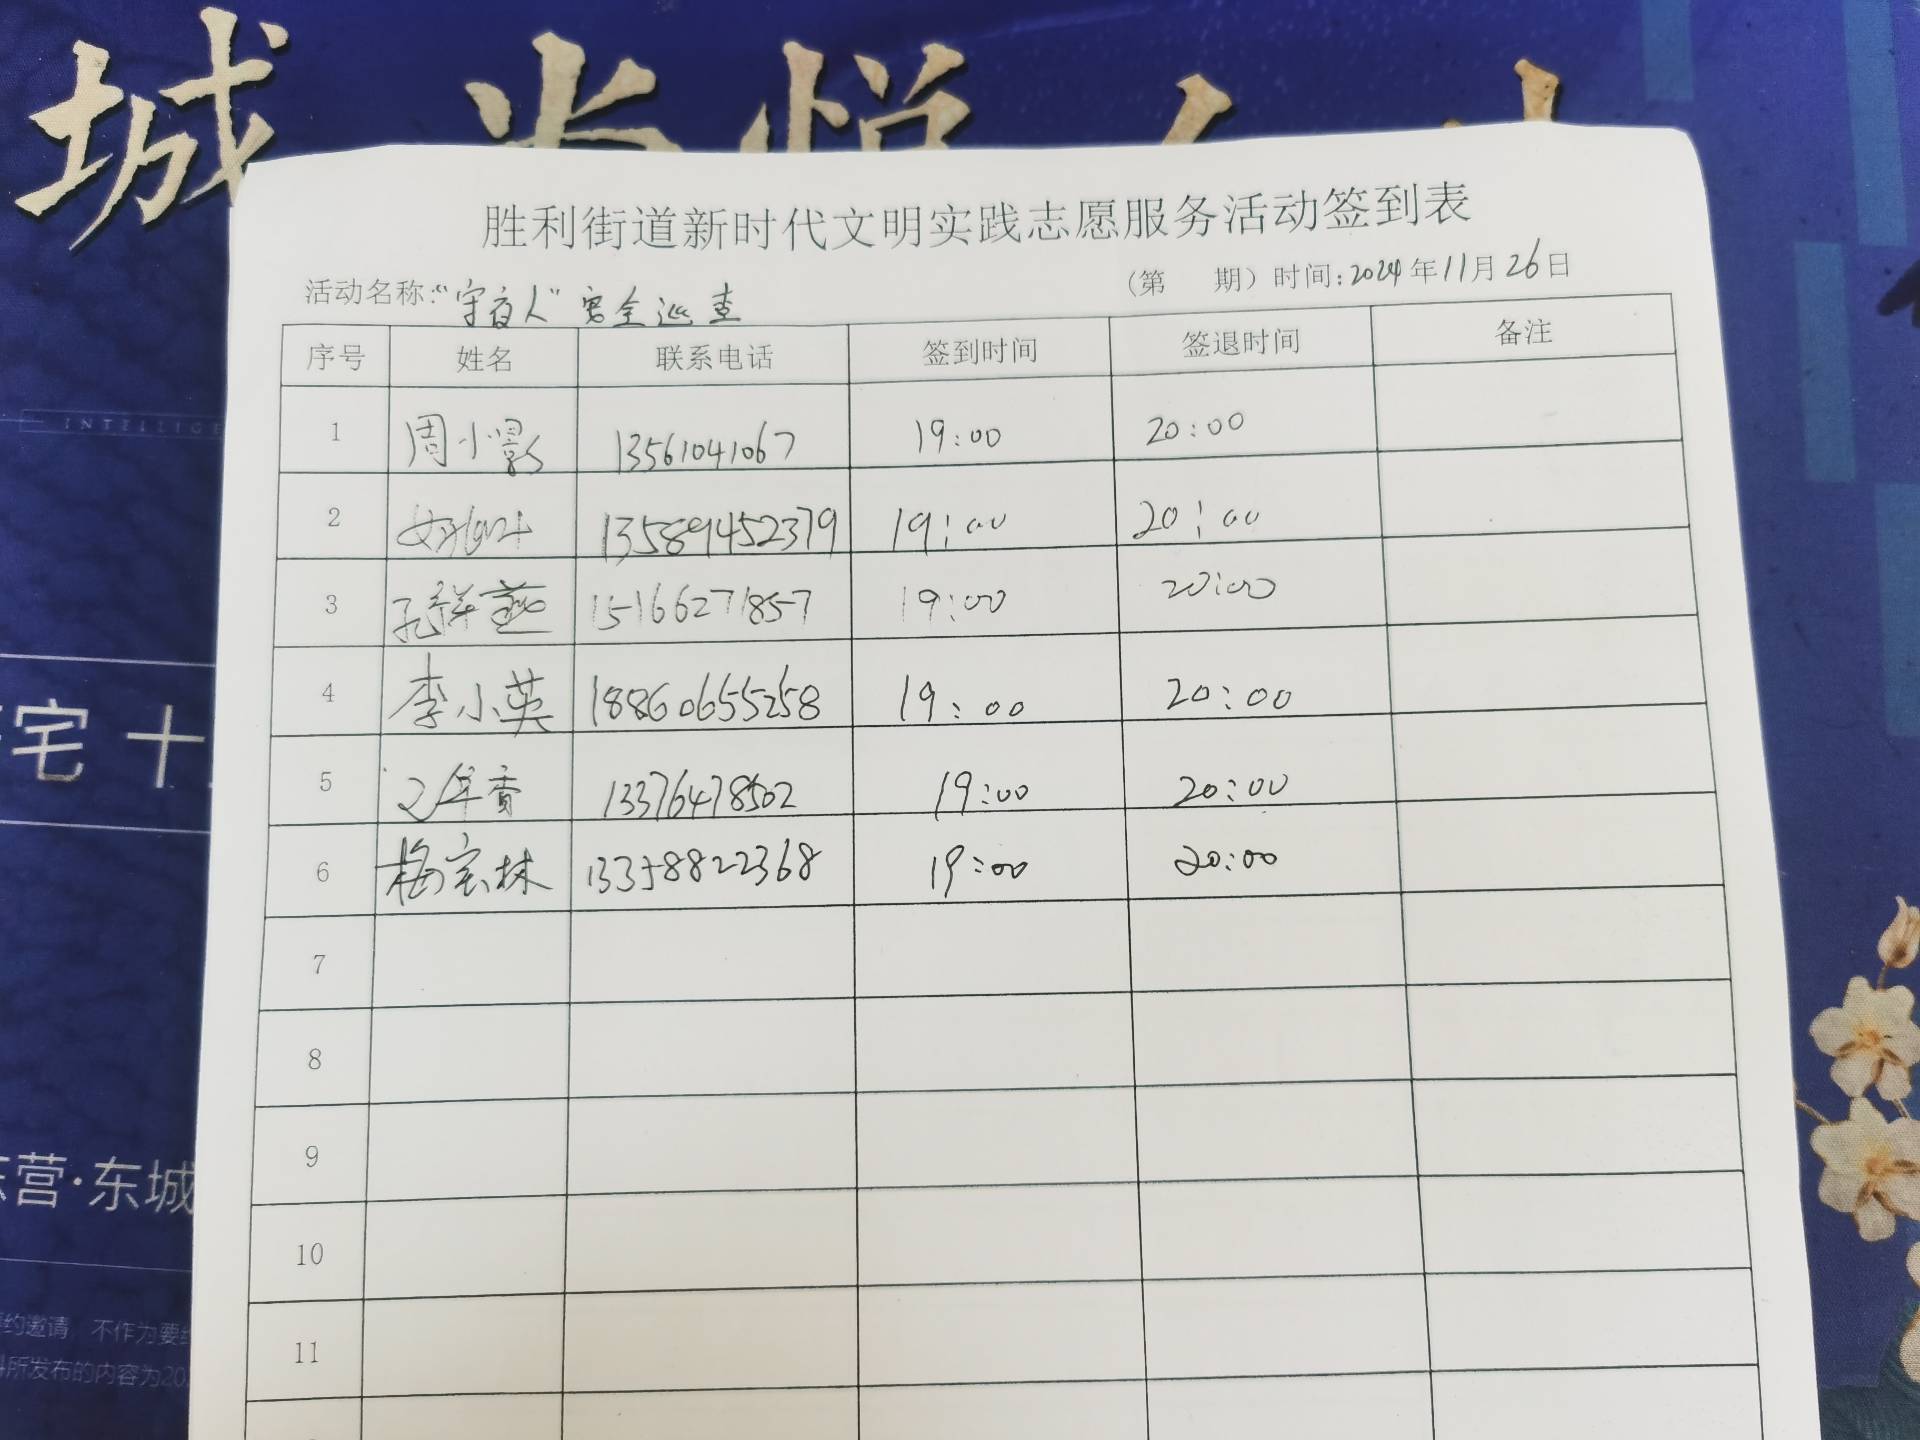 城 尚悦
胜利街道新时代文明实践志愿服务活动签到表
活动名称:“守夜人”安全巡查 (第 期) 时间:2024年11月26日
序号 姓名 联系电话 签到时间 签退时间 备注
1 周小影 13561041067 19:00 20:00
2 13589452379 19:00 20:00
3 孔祥燕 15166271857 19:00 20:00
4 李小英 18860655258 19:00 20:00
5 13376478502 19:00 20:00
6 梅宝林 13358822368 19:00 20:00
7
8
9
10
11
INTELLIGE
宅 十
东营·东城
要约邀请, 不作为要约
料所发布的内容为20